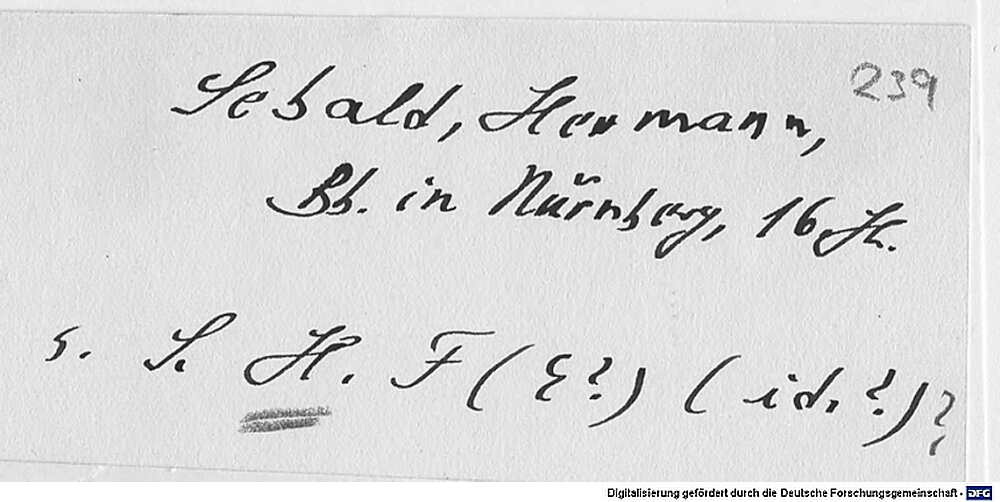 239
Sebald, Hermann,
Bb. in Nürnberg, 16. Jh.
s. S. H. F ( ?) (id. ?) ?
Digitalisierung gefördert durch die Deutsche Forschungsgemeinschaft - DFG